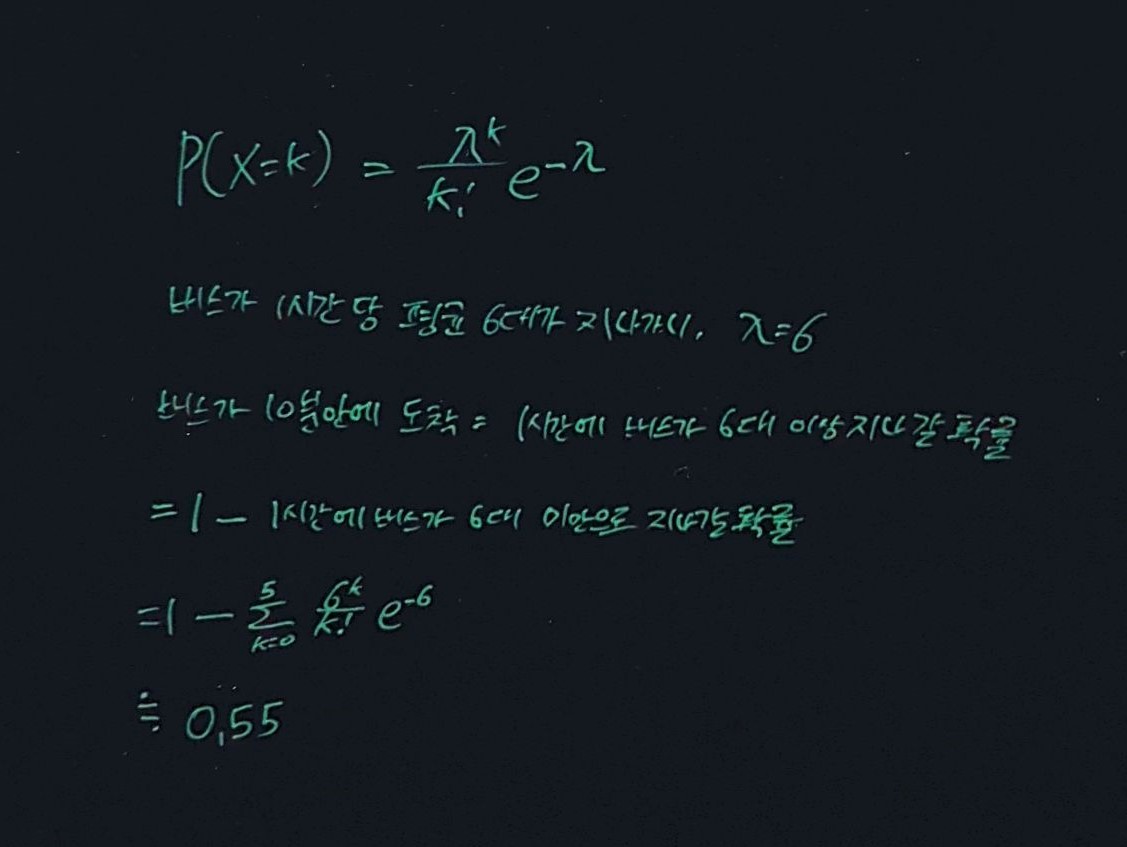 P(X=k) = λ^k / k! e^-λ
버스가 1시간 당 평균 6대가 지나가니, λ=6
버스가 10분안에 도착 = 1시간에 버스가 6대 이상 지나갈 확률
=1 - 1시간에 버스가 6대 이안으로 지나갈 확률
=1 - 5 Σ k=0 6^k / k! e^-6
≒ 0,55